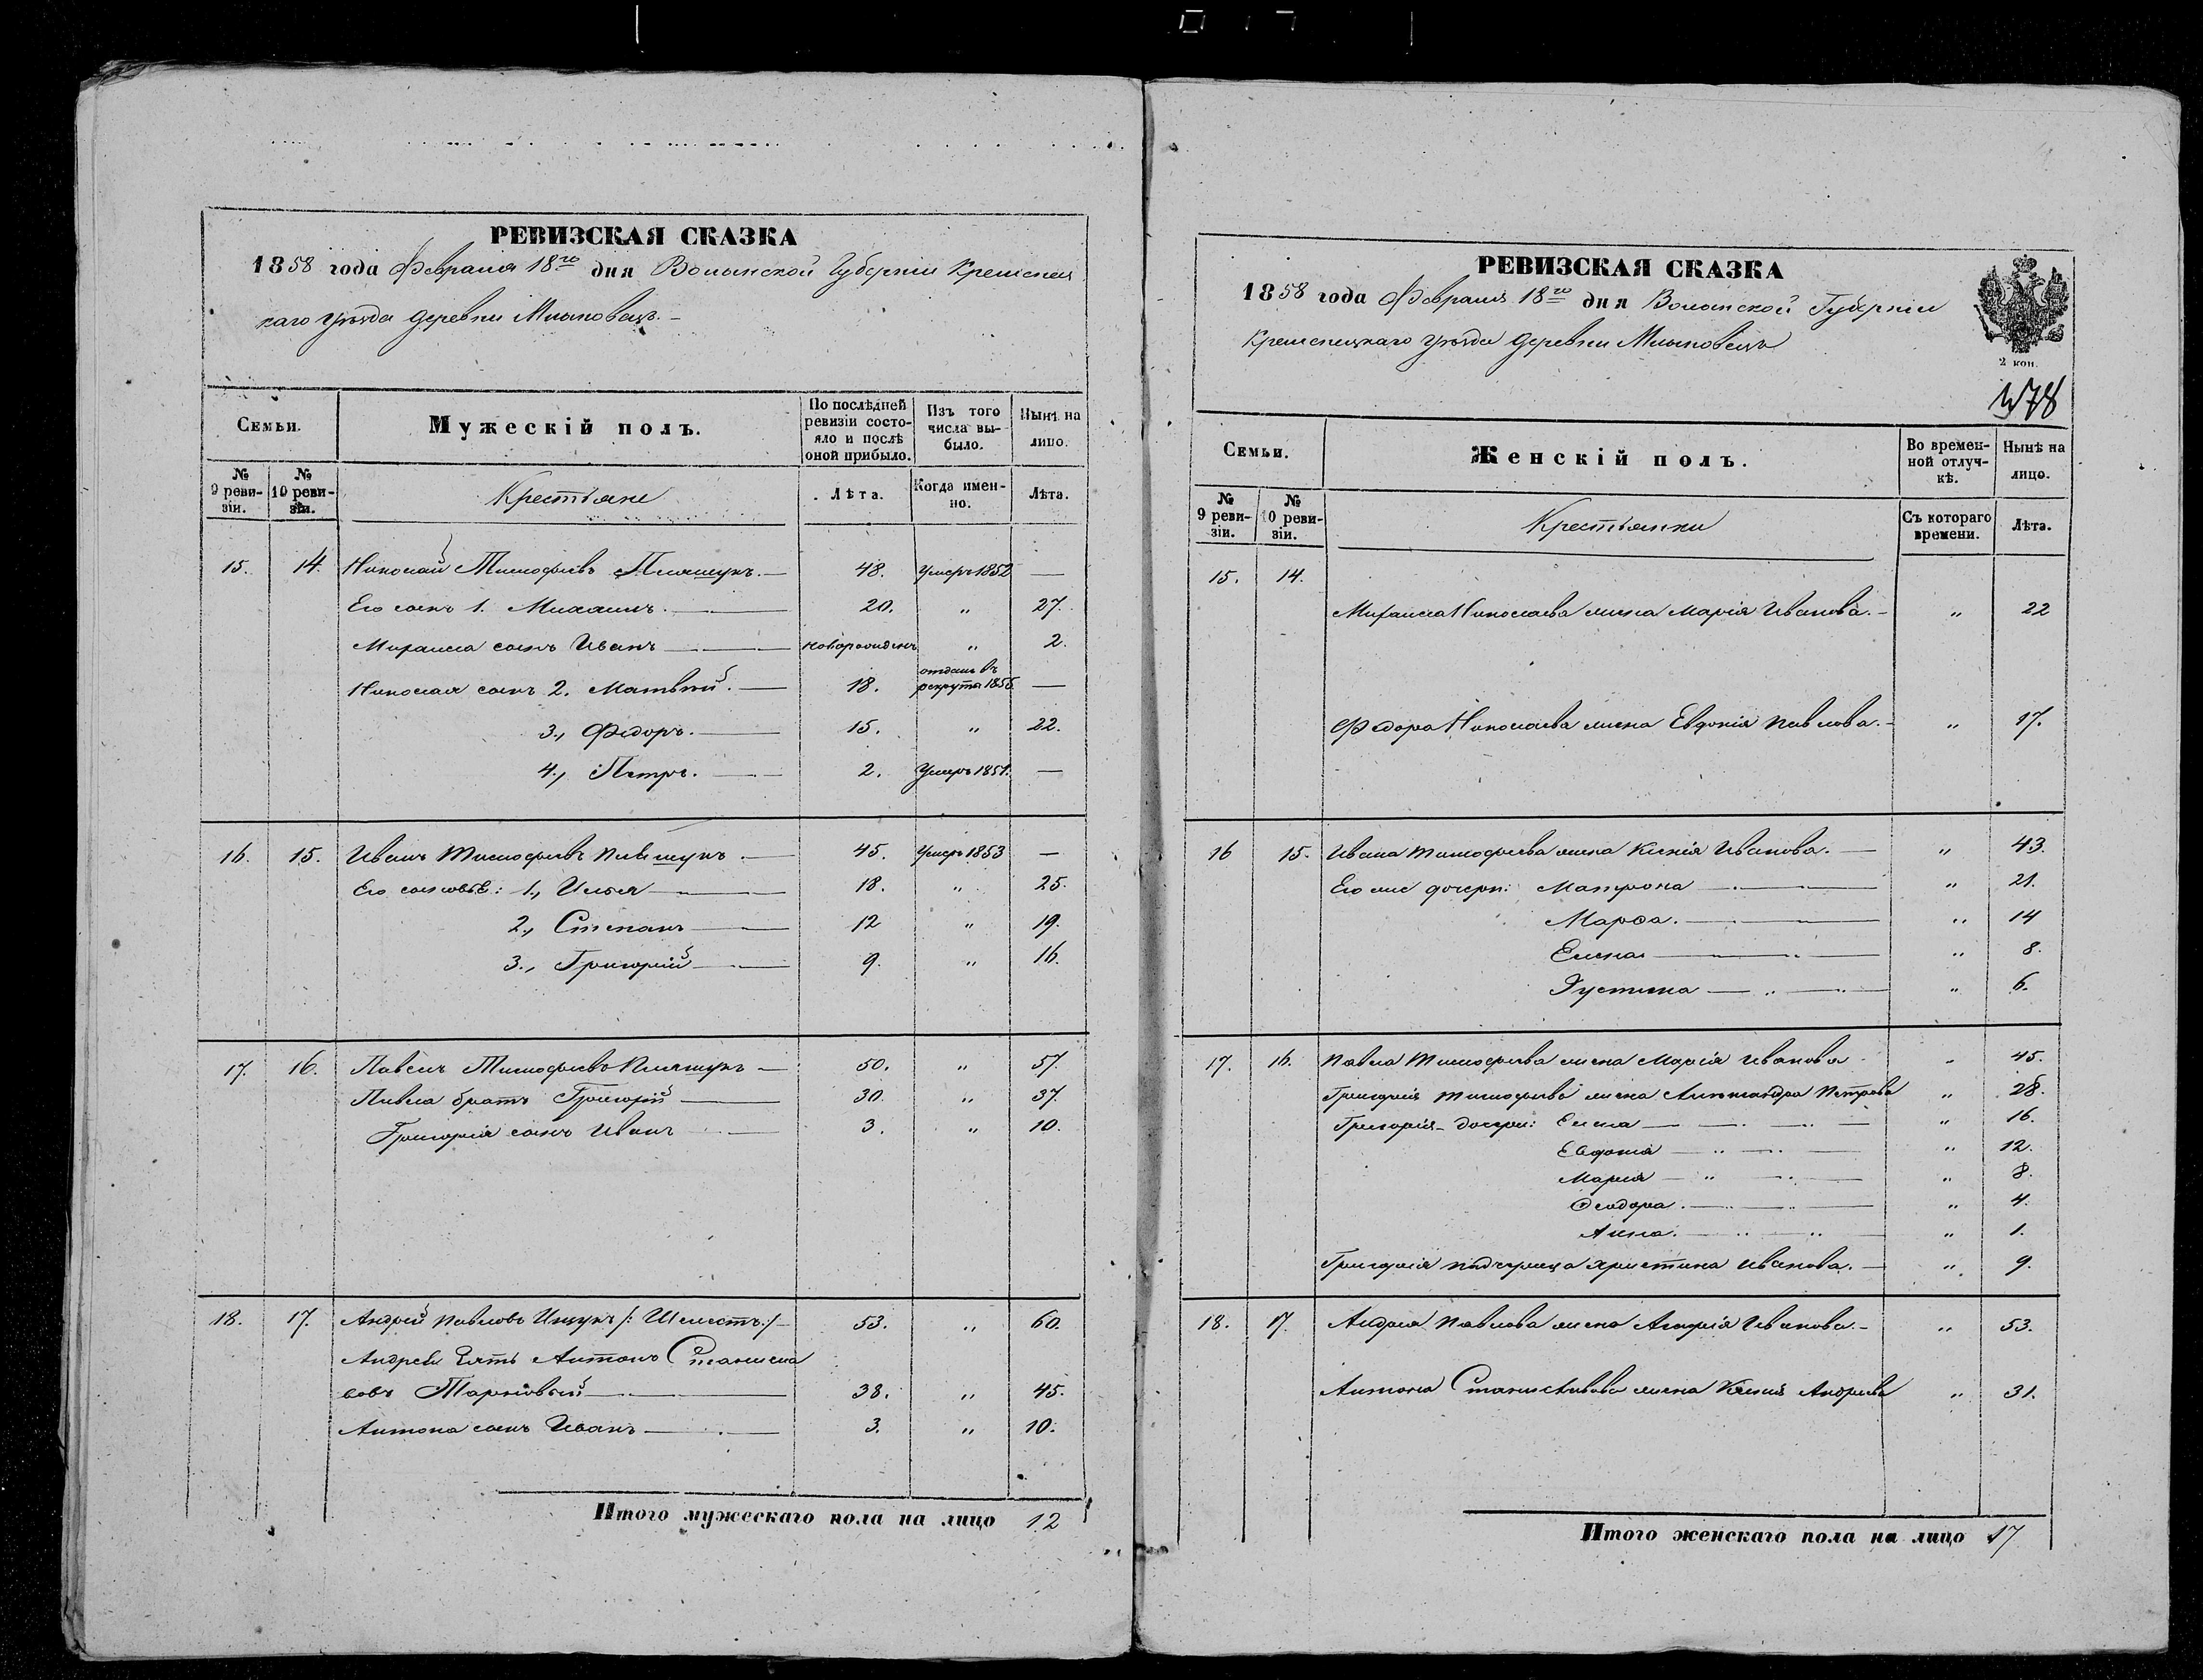 РЕВИЗСКАЯ СКАЗКА
1858 года Февраля 18го дня Волынской Губерніи Кременец
каго уѣзда деревни Млыновецъ.
Семьи.
Мужескій полъ.
По послѣдней ревизіи состояло и послѣ оной прибыло.
Изъ того числа выбыло.
Нынѣ на лицо.
№ 9 ревизіи.
№ 10 ревизіи.
Крестьяне
Лѣта.
Когда именно.
Лѣта.
15. 14. Николай Тимофѣевъ 48. Умеръ 1852 —
Его сынъ 1. Михаилъ. 20. " 27.
Михаила сынъ Иванъ новорожденъ " 2.
Николая сынъ 2. Матвѣй. 18. отданъ въ рекруты 1855 —
3., Федоръ. 15. " 22.
4., Петръ. 2. Умеръ 1851. —
16. 15. Иванъ Тимофѣевъ 45. Умеръ 1853 —
Его сыновье: 1., Илья 18. " 25.
2., Степанъ 12 " 19.
3., Григорій 9. " 16.
17. 16. Павелъ Тимофѣевъ 50. " 57.
Павла братъ Григорій 30. " 37.
Григорія сынъ Иванъ 3. " 10.
18. 17. Андрей Павловъ Ищукъ /: Шелестъ :/ 53. " 60.
Андрея Зять Антонъ Станисла
вовъ 38. " 45.
Антона сынъ Иванъ 3. " 10.
Итого мужескаго пола на лицо 12
РЕВИЗСКАЯ СКАЗКА
1858 года Февраля 18го дня Волынской Губерніи
Кременецкаго уѣзда деревни Млыновецъ
2 коп.
478
Семьи.
Женскій полъ.
Во временной отлучкѣ.
Нынѣ на лицо.
№ 9 ревизіи.
№ 10 ревизіи.
Крестьянки
Съ котораго времени.
Лѣта.
15. 14.
Михаила Николаева жена Марія Иванова. " 22
Федора Николаева жена Евдокія Павлова. " 17.
16 15. Ивана Тимофѣева жена Ксенія Иванова. " 43.
Его же дочери: Матрона " 21.
Марѳа. " 14
Елена " 8.
Юстина " 6.
17. 16. Павла Тимофѣева жена Марія Иванова " 45.
Григорія Тимофѣева жена Александра Петрова " 28.
Григорія дочери: Елена " 16.
Евдокія " 12.
Марія " 8.
Ѳеодора. " 4.
Анна. " 1.
Григорія падчерица Христина Иванова. " 9.
18. 17. Андрея Павлова жена Агафія Иванова. " 53.
Антона Станиславова жена Ксенія Андреева " 31.
Итого женскаго пола на лицо 17